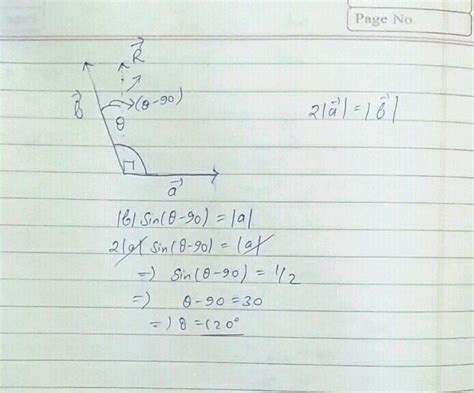 Page No.
R⃗
b⃗
(θ-90)
θ
2|a⃗| = |b⃗|
a⃗
|b| sin(θ-90) = |a|
2|a| sin(θ-90) = |a|
=) sin(θ-90) = 1/2
=) θ-90 = 30
=) θ = 120°